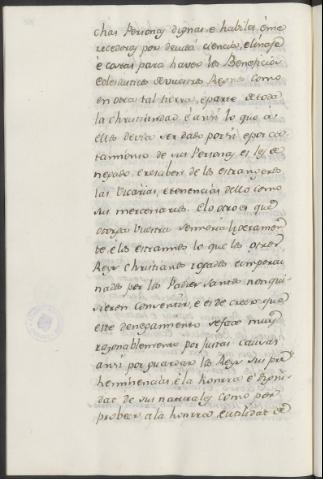 chas Personas dignas e habiles, é me
recedoras por devida ciencia, elinage
é causas para haver los Beneficios
eclesiasticos de vuestros Reynos como
en otra tal tierra, e parte de toda
la christiandad é ansi lo que á
ellos devia ser dado por si e por ca
tamiento de sus Personas es les de
negado, e resciben de los estrangeros
las Vicarias, e tenencias dello como
sus mercenarios. E lo otro es que
otorga Vuestra Señoria liberamen
te é los estraños lo que los otros
Reys Christianos rogados e importu
nados por los Padres Santos non qui
sieron consentir, e es de creer que
este denegamiento se face muy
razonablemente por justas causas
ansi por guardar los Reys sus pre
heminencias é la honrra é
dad de sus naturales como por
probeer a la honrra e utilidat de